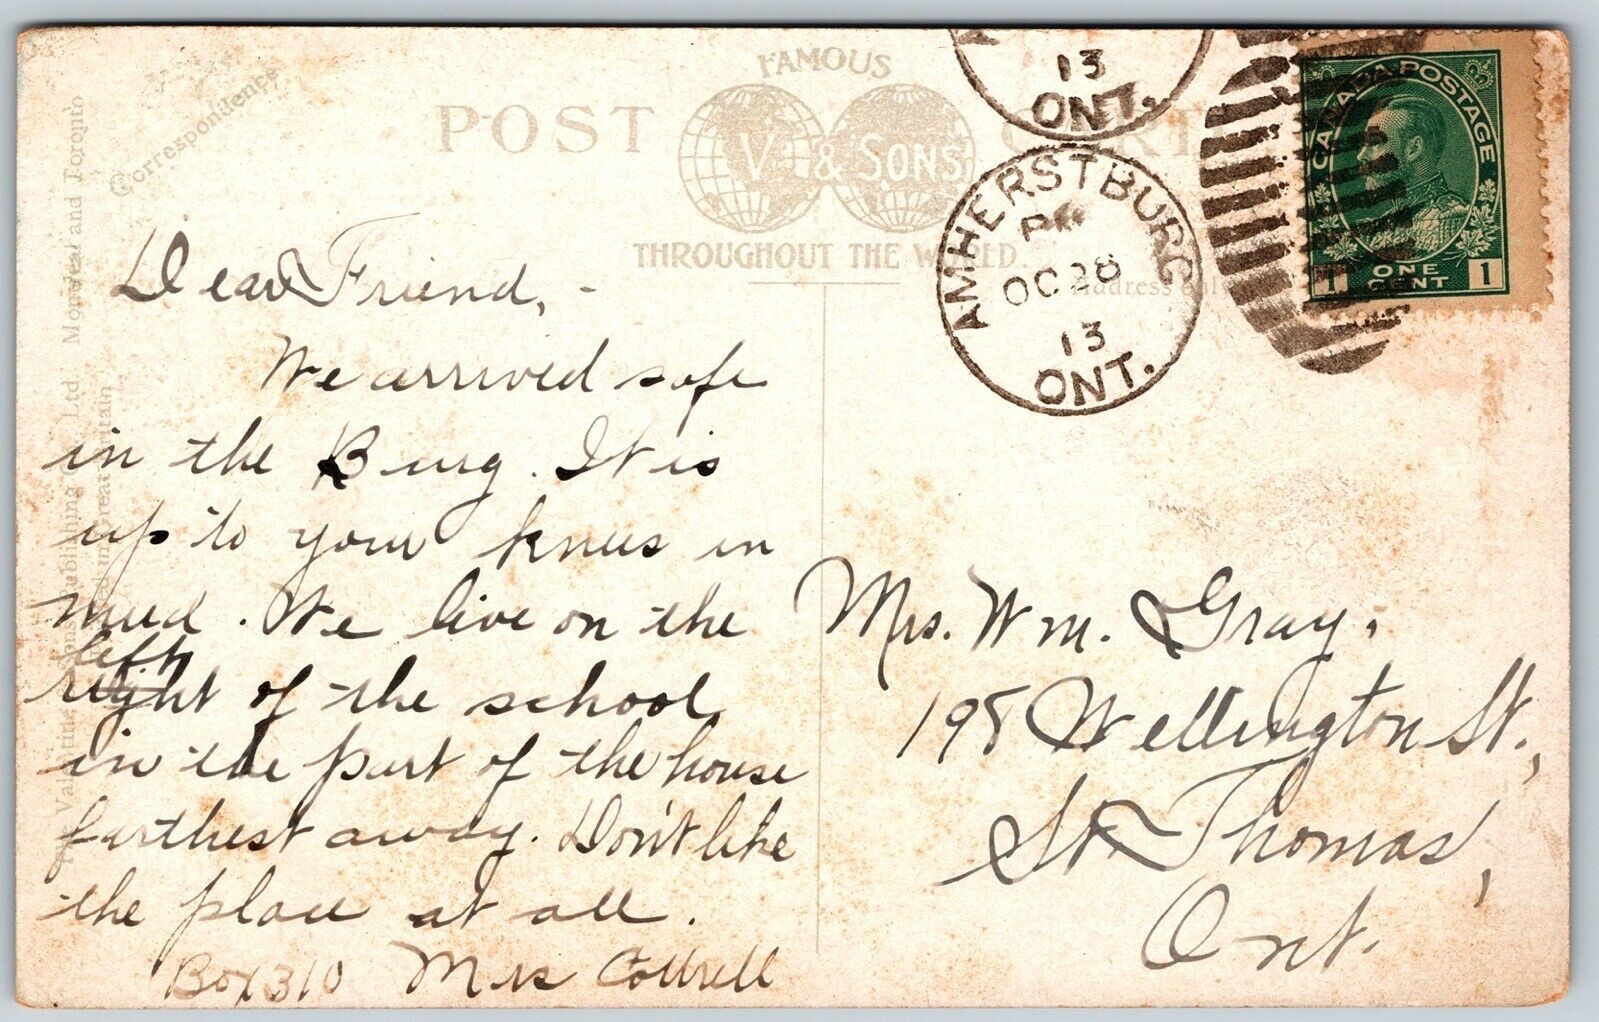 FAMOUS
POST CARD
V. & SONS
THROUGHOUT THE WORLD.
Correspondence
Address only
Valentine & Sons Publishing Co. Ltd. Montreal and Toronto
Printed in Great Britain
13
ONT.
AMHERSTBURG
PM
OC 28
13
ONT.
CANADA POSTAGE
1 ONE CENT 1
Dear Friend, -
We arrived safe
in the Burg. It is
up to your knees in
mud. We live on the
left
right of the school
in the part of the house
farthest away. Don't like
the place at all.
Box 310 Mrs Cottrell
Mrs. Wm. Gray.
198 Wellington St.,
St. Thomas,
Ont.